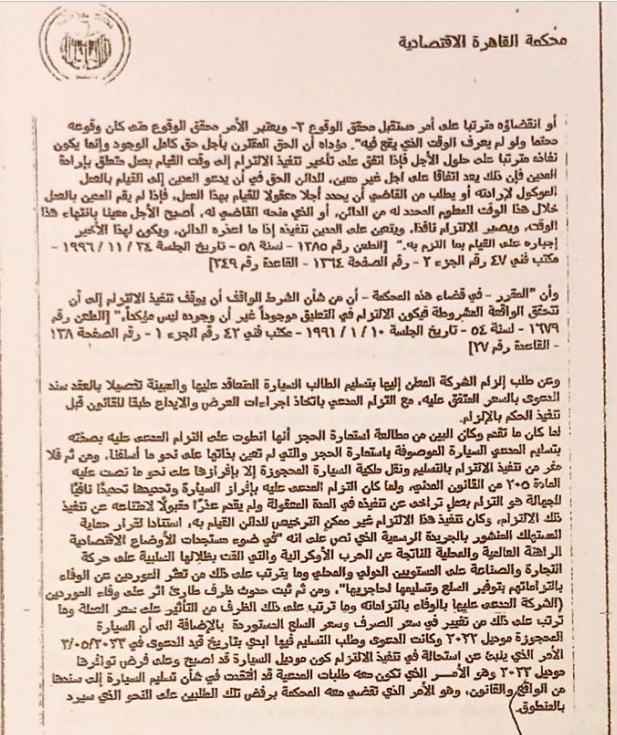 محكمة القاهرة الاقتصادية
أو انقضاؤه مترتبا على أمر مستقبل محقق الوقوع ٢- ويعتبر الأمر محقق الوقوع متى كان وقوعه
محتما ولو لم يعرف الوقت الذي يقع فيه". مؤداه أن الحق المقترن بأجل حق كامل الوجود وإنما يكون
نفاذه مترتبا على حلول الأجل فإذا اتفق على تأخير تنفيذ الالتزام إلى وقت القيام بعمل متعلق بإرادة
المدين فإن ذلك يعد اتفاقا على اجل غير معين، للدائن الحق في أن يدعو المدين إلى القيام بالعمل
الموكول لإرادته أو يطلب من القاضي أن يحدد أجلا معقولا للقيام بهذا العمل، فإذا لم يقم المدين بالعمل
خلال هذا الوقت المعلوم المحدد له من الدائن، أو الذي منحه القاضي له، أصبح الأجل معينا بانتهاء هذا
الوقت، ويصير الالتزام نافذا، ويتعين على المدين تنفيذه إذا ما اعذره الدائن، ويكون لهذا الأخير
إجباره على القيام بما التزم به." [الطعن رقم ١٣٨٥ - لسنة ٥٨ - تاريخ الجلسة ٢٤ / ١١ / ١٩٩٦ -
مكتب فني ٤٧ رقم الجزء ٢ - رقم الصفحة ١٣٦٤ - القاعدة رقم ٢٤٩]
وأن "المقرر - في قضاء هذه المحكمة - أن من شأن الشرط الواقف أن يوقف تنفيذ الالتزام إلى أن
تتحقق الواقعة المشروطة فيكون الالتزام في التعليق موجوداً غير أن وجوده ليس مؤكداً." [الطعن رقم
١٦٧٩ - لسنة ٥٤ - تاريخ الجلسة ١٠ / ١ / ١٩٩١ - مكتب فني ٤٢ رقم الجزء ١ - رقم الصفحة ١٣٨
- القاعدة رقم ٢٧]
وعن طلب إلزام الشركة المعلن إليها بتسليم الطالب السيارة المتعاقد عليها والمبينة تفصيلا بالعقد سند
الدعوى بالسعر المتفق عليه، مع التزام المدعي باتخاذ اجراءات العرض والايداع طبقا للقانون قبل
تنفيذ الحكم بالإلزام.
لما كان ما تقدم وكان البين من مطالعة استمارة الحجز أنها انطوت على التزام المدعى عليه بصفته
بتسليم المدعي السيارة الموصوفة باستمارة الحجز والتي لم تعين بذاتها على نحو ما أسلفنا، ومن ثم فلا
مفر من تنفيذ الالتزام بالتسليم ونقل ملكية السيارة المحجوزة إلا بإفرازها على نحو ما نصت عليه
المادة ٢٠٥ من القانون المدني، ولما كان التزام المدعى عليه بإفراز السيارة وتحديدها تحديدًا نافيًا
للجهالة هو التزام بعمل تراخى عن تنفيذه في المدة المعقولة ولم يقدم عذرًا مقبولًا لامتناعه عن تنفيذ
ذلك الالتزام، وكان تنفيذ هذا الالتزام غير ممكن الترخيص للدائن القيام به، استنادا لقرار حماية
المستهلك المنشور بالجريدة الرسمية الذي نص على انه "في ضوء مستجدات الأوضاع الاقتصادية
الراهنة العالمية والمحلية الناتجة عن الحرب الأوكرانية والتي القت بظلالها السلبية على حركة
التجارة والصناعة على المستويين الدولي والمحلي وما يترتب على ذلك من تعثر الموردين عن الوفاء
بالتزاماتهم بتوفير السلع وتسليمها لحاجزيها"، ومن ثم ثبت حدوث ظرف طارئ اثر على وفاء الموردين
(الشركة المدعى عليها بالوفاء بالتزاماته وما ترتب على ذلك الظرف من التأثير على سعر العملة وما
ترتب على ذلك من تغيير في سعر الصرف وسعر السلع المستوردة بالإضافة الى أن السيارة
المحجوزة موديل ٢٠٢٢ وكانت الدعوى وطلب التسليم فيها ابدي بتاريخ قيد الدعوى في ٢/٠٥/٢٠٢٣
الأمر الذي ينبئ عن استحالة في تنفيذ الالتزام كون موديل السيارة قد اصبح وعلى فرض توافرها
موديل ٢٠٢٣ وهو الأمـــر الذي تكون معه طلبات المدعية قد افتقدت في شأن تسليم السيارة إلى سندها
من الواقع والقانون، وهو الأمر الذي تقضي معه المحكمة برفض تلك الطلبين على النحو الذي سيرد
بالمنطوق.